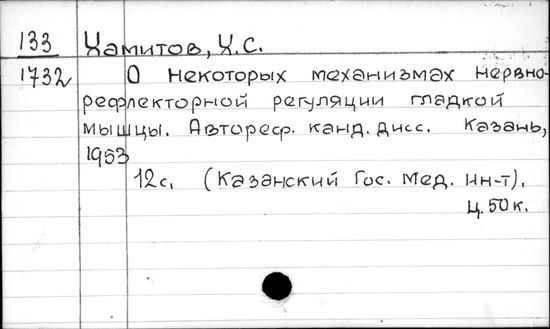 133 Хамитов, Х.С.
1732 О некоторых механизмах нервно-
рефлекторной регуляции гладкой
мышцы. Автореф. канд. дисс. Казань,
1953
12 с. (Казанский Гос. Мед. ин-т).
ц. 50 к.